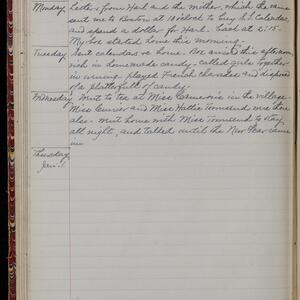 Monday Letters from Harl and the mother, which the same
sent me to Boston at 10 o'clock to buy S.S. Calendar,
and spend a dollar for Harl. back at 2:15.
My box started home this morning.
Tuesday Sent calendars home. Box arrived this afternoon
rich in homemade candy - called girls together
in evening played French charades and disposed
of a platterfull of candy.
Wednesday Went to tea at Miss Cameron's in the village
Miss Currier and Miss Hattie Townsend were there
also - went home with Miss Townsend to stay
all night, and talked until the New Year came
in
Thursday
Jan. 1.